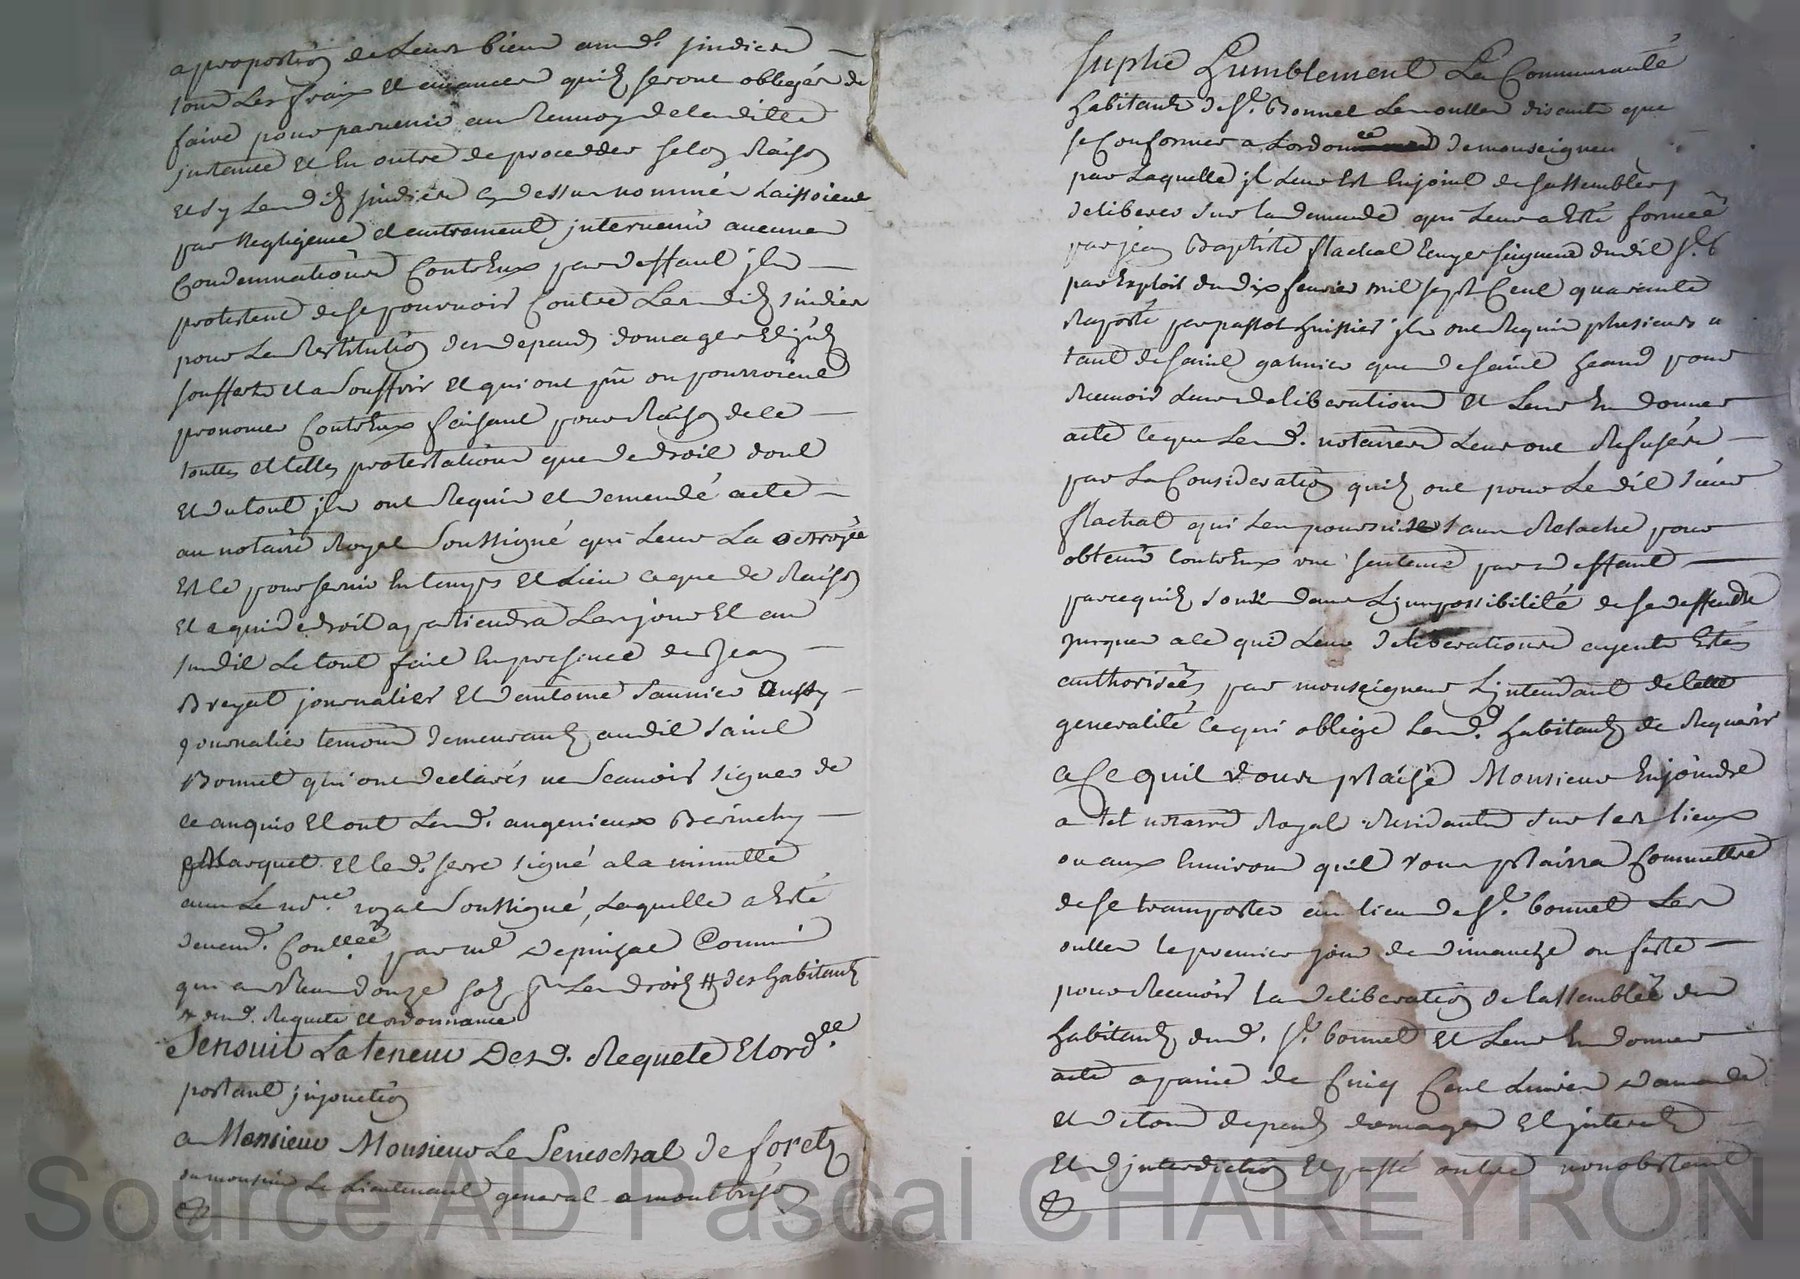 a proportion de Leurs biens aux d. sindics
tous Les fraix et avances quils seront obligés de
faire pour parvenir au Renvoy de laditte
instance et En outre de proceder selon Raison
et sy Lesdits sindics cy dessus nommés Laissoient
par Negligence et autrement intervenir aucunes
Condemnations ContrEux par deffaut ils
protestent de se pourvoir Contre Lesdits sindics
pour La Restitution des depends domages et jnts
soufferts et a Souffrir et qui ont pû ou pourroient
prononcer ContrEux faisant pour Raison de ce
touttes et telles protestations que de droit dont
et du tout ils ont Requis et demendé acte
au notaire Royal Soussigné qui Leur La octroyée
Et ce pour servir En temps et Lieu ce que de Raison
et a qui de droit apartiendra Les jour et an
susdit Le tout fait En presence de Jean
Breyat journalier et dantoine Saunier aussy
journalier temoins demeurants audit Saint
Bonnet qui ont declarés ne Scavoir signer de
ce anquis et ont Lesd. angenieux Berinchy
Marquet et led. serre signé a la minutte
avec Le nore royal Soussigné, Laquelle a Esté
devemt. Conllée par me Depinzat Commis
qui a Reçu douze sols pr Les droits # des habitants
# dud. Requete et ordonnance
Sensuit La teneur Desd. Requete Et ordce
portant injonction
a Monsieur Monsieur Le Seneschal de forets
ou monsieur Le Lieutenant general a montbrison
Suplie humblement La Communauté
habitants de St. Bonnet Les oulles disants que
se Conformer a Lordonnce de monseigneu
par Laquelle il Leur Est Enjoint de sassembler
deliberer sur la demande qui Leur a Esté formée
par jean Baptiste flachat Ecuyer seigneur dudit St. B
par Exploit du dix fevrier mil sept Cent quarante
Raporté par passot huissier ils ont Requis plusieurs n
tant de saint galmier que de saint heand pour
Recevoir Leurs deliberations et Leur En donner
acte ce que Lesd. notaires Leurs ont Refusés
par La Consideration quils ont pour Ledit sieur
flachat qui Les poursuit sans Relache pour
obtenir contrEux une sentence par deffaut
parcequils sont dans Ljmpossibilité de se deffendre
jusques a ce que Leurs deliberations ayents Estés
authorisées par monseigneur Ljntendant de cette
generalité ce qui oblige Lesd. habitants de Requerir
a Ce quil vous plaise Monsieur Enjoindre
a tel notaire Royal Residants sur Les lieux
ou aux Environs quil vous plairra Commettre
de se transporter au lieu de St. bonnet Les
oulles le premier jour de dimanche ou feste
pour Recevoir la deliberation de lassemblée des
habitants dud. St. bonnet et Leur En donner
acte a paine de Cinq Cent Livres damande
et de tous depends domages et jnterets
et djnterdiction et passé outre nonobstant
Source AD Pascal CHAREYRON